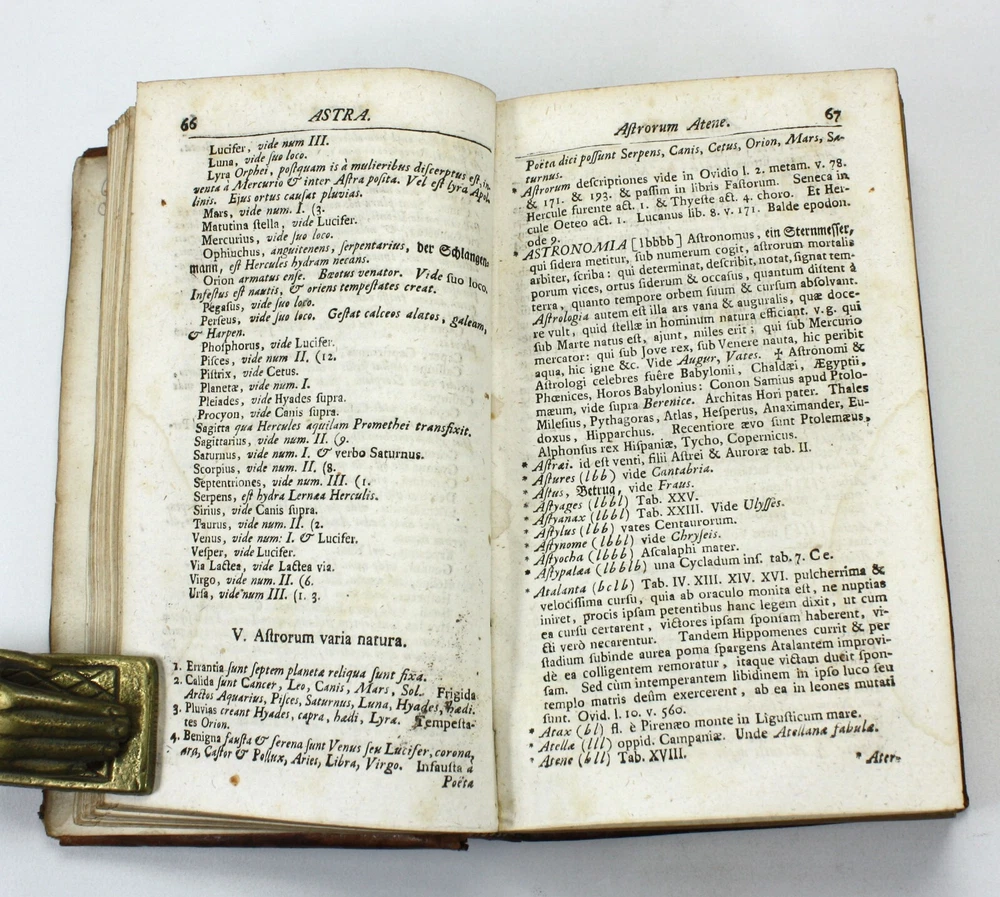 66 ASTRA.
Lucifer, vide num III.
Luna, vide ſuo loco.
Lyra Orphei, poſtquam is à mulieribus diſcerptus eſt, in-
venta à Mercurio & inter Aſtra poſita. Vel eſt lyra Apol-
linis. Ejus ortus cauſat pluvias.
Mars, vide num. I. (3.
Matutina ſtella, vide Lucifer.
Mercurius, vide ſuo loco.
Ophiuchus, anguitenens, ſerpentarius, der Schlangen-
mann, eſt Hercules hydram necans.
Orion armatus enſe. Bœotus venator. Vide ſuo loco.
Infeſtus eſt nautis, & oriens tempeſtates creat.
Pegaſus, vide ſuo loco.
Perſeus, vide ſuo loco. Geſtat calceos alatos, galeam,
& Harpen.
Phoſphorus, vide Lucifer.
Piſces, vide num II. (12.
Piſtrix, vide Cetus.
Planetæ, vide num. I.
Pleiades, vide Hyades ſupra.
Procyon, vide Canis ſupra.
Sagitta qua Hercules aquilam Promethei transfixit.
Sagittarius, vide num. II. (9.
Saturnus, vide num. I. & verbo Saturnus.
Scorpius, vide num. II. (8.
Septentriones, vide num. III. (1.
Serpens, eſt hydra Lernæa Herculis.
Sirius, vide Canis ſupra.
Taurus, vide num. II. (2.
Venus, vide num: I. & Lucifer.
Veſper, vide Lucifer.
Via Lactea, vide Lactea via.
Virgo, vide num. II. (6.
Urſa, vide num III. (1. 3.
V. Aſtrorum varia natura.
1. Errantia ſunt ſeptem planetæ reliqua ſunt fixa.
2. Calida ſunt Cancer, Leo, Canis, Mars, Sol. Frigida
Arctos Aquarius, Piſces, Saturnus, Luna, Hyades, hædi.
3. Pluvias creant Hyades, capra, hædi, Lyra. Tempeſta-
tes Orion.
4. Benigna fauſta & ſerena ſunt Venus ſeu Lucifer, corona,
ara, Caſtor & Pollux, Aries, Libra, Virgo. Infauſta à
Poëta
Aſtrorum Atene. 67
Poëta dici poſſunt Serpens, Canis, Cetus, Orion, Mars, Sa-
turnus.
* Aſtrorum deſcriptiones vide in Ovidio l. 2. metam. v. 78.
& 171. & 193. & paſſim in libris Faſtorum. Seneca in
Hercule furente act. 1. & Thyeſte act. 4. choro. Et Her-
cule Oeteo act. 1. Lucanus lib. 8. v. 171. Balde epodon.
ode 9.
* ASTRONOMIA [lbbbb] Aſtronomus, ein Sternmeſſer,
qui ſidera metitur, ſub numerum cogit, aſtrorum mortalis
arbiter, ſcriba: qui determinat, deſcribit, notat, ſignat tem-
porum vices, ortus ſiderum & occaſus, quantum diſtent à
terra, quanto tempore orbem ſuum & curſum abſolvant.
Aſtrologia autem eſt illa ars vana & auguralis, quæ doce-
re vult, quid ſtellæ in hominum natura efficiant. v. g. qui
ſub Marte natus eſt, ajunt, miles erit; qui ſub Mercurio
mercator: qui ſub Jove rex, ſub Venere nauta, hic peribit
aqua, hic igne &c. Vide Augur, Vates. ✢ Aſtronomi &
Aſtrologi celebres fuêre Babylonii, Chaldæi, Ægyptii,
Phœnices, Horos Babylonius: Conon Samius apud Ptolo-
mæum, vide ſupra Berenice. Architas Hori pater. Thales
Mileſius, Pythagoras, Atlas, Heſperus, Anaximander, Eu-
doxus, Hipparchus. Recentiore ævo ſunt Ptolemæus,
Alphonſus rex Hiſpaniæ, Tycho, Copernicus.
* Aſtræi. id eſt venti, filii Aſtrei & Auroræ tab. II.
* Aſtures (lbb) vide Cantabria.
* Aſtus, Betrug, vide Fraus.
* Aſtyages (lbbl) Tab. XXV.
* Aſtyanax (lbbl) Tab. XXIII. Vide Ulyſſes.
* Aſtylus (lbb) vates Centaurorum.
* Aſtynome (lbbl) vide Chryſeis.
* Aſtyocha (lbbb) Aſcalaphi mater.
* Aſtypalæa (lbblb) una Cycladum inſ. tab. 7. C e.
* Atalanta (bclb) Tab. IV. XIII. XIV. XVI. pulcherrima &
velociſſima curſu, quia ab oraculo monita eſt, ne nuptias
iniret, procis ipſam petentibus hanc legem dixit, ut cum
ea curſu certarent, victores ipſam ſponſam haberent, vi-
cti verò necarentur. Tandem Hippomenes currit & per
ſtadium ſubinde aurea poma ſpargens Atalantem improvi-
dè ea colligentem remoratur, itaque victam ducit ſpon-
ſam. Sed cùm intemperantem libidinem in ipſo luco ſeu
templo matris deûm exercerent, ab ea in leones mutati
ſunt. Ovid. l. 10. v. 560.
* Atax (bl) fl. è Pirenæo monte in Liguſticum mare.
* Atellæ (lll) oppid. Campaniæ. Unde Atellanæ fabulæ.
* Atene (bll) Tab. XVIII.
* Ater-